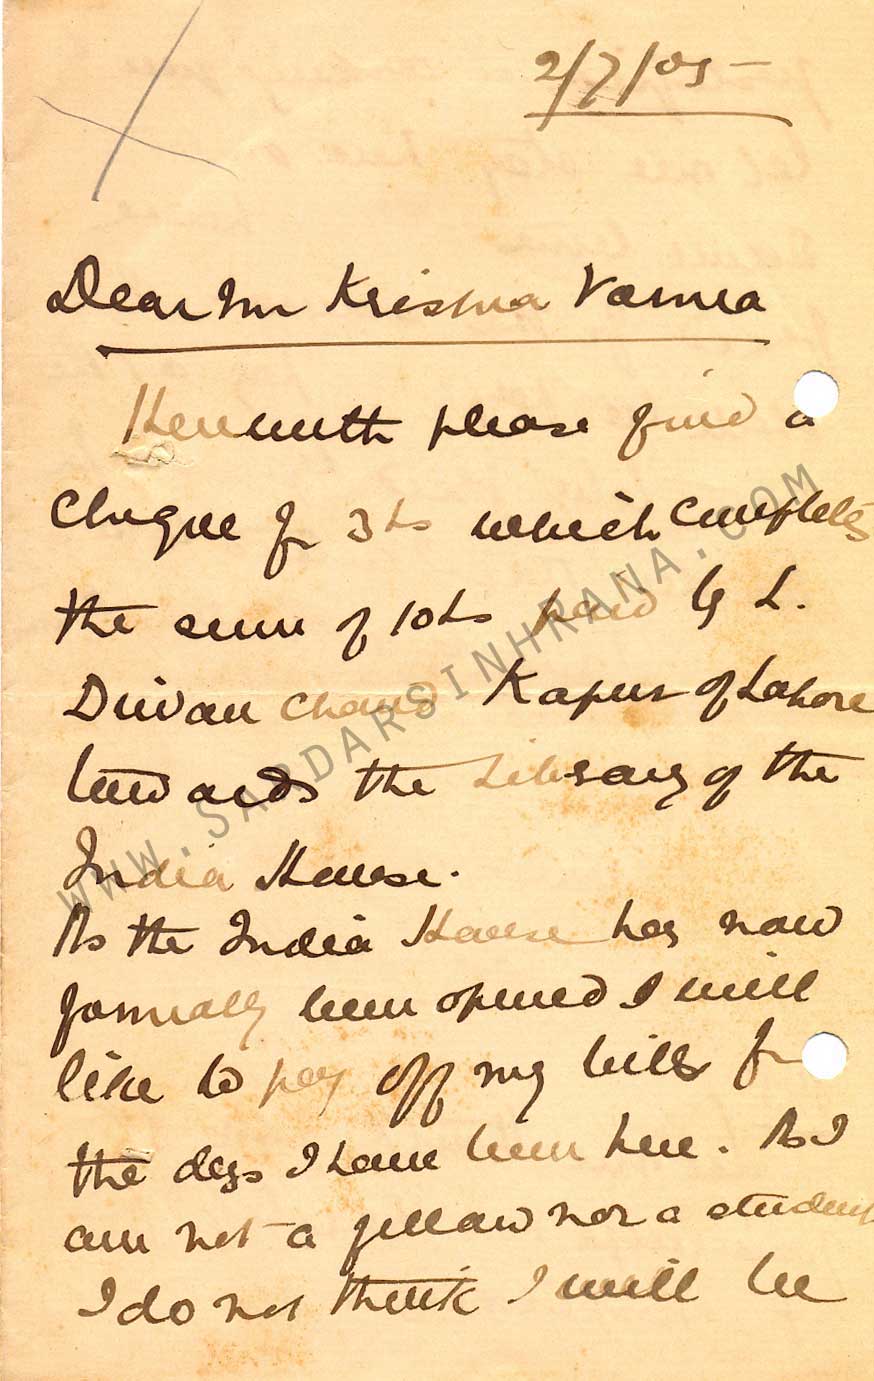 2/7/05 -
Dear Mr Krishna Varma
Herewith please find a
cheque for 3 £s which completes
the sum of 10 £s paid by L.
Diwan Chand Kapur of Lahore
towards the Library of the
India House.
As the India House has now
formally been opened I will
like to pay off my bills for
the days I have been here. As I
am not a fellow nor a student
I do not think I will be
WWW.SARDARSINHRANA.COM